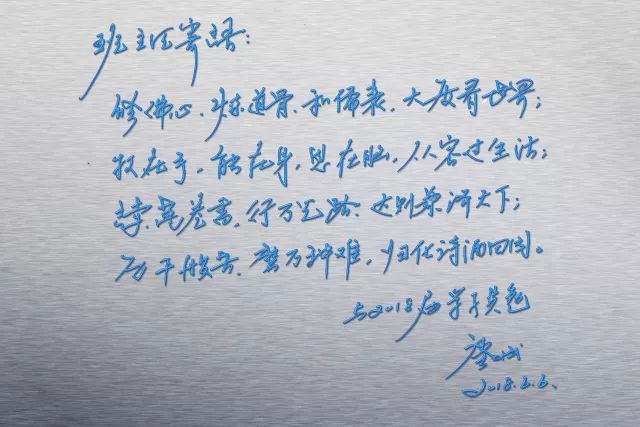 班主任寄语：
修佛心，炼道骨，和儒表，大度看世界；
技在手，能在身，思在脑，从容过生活；
读万卷书，行万里路，达则兼济天下；
历千般苦，磨万种难，归化诗酒田园。
与2018届学子共勉
2018.6.6.